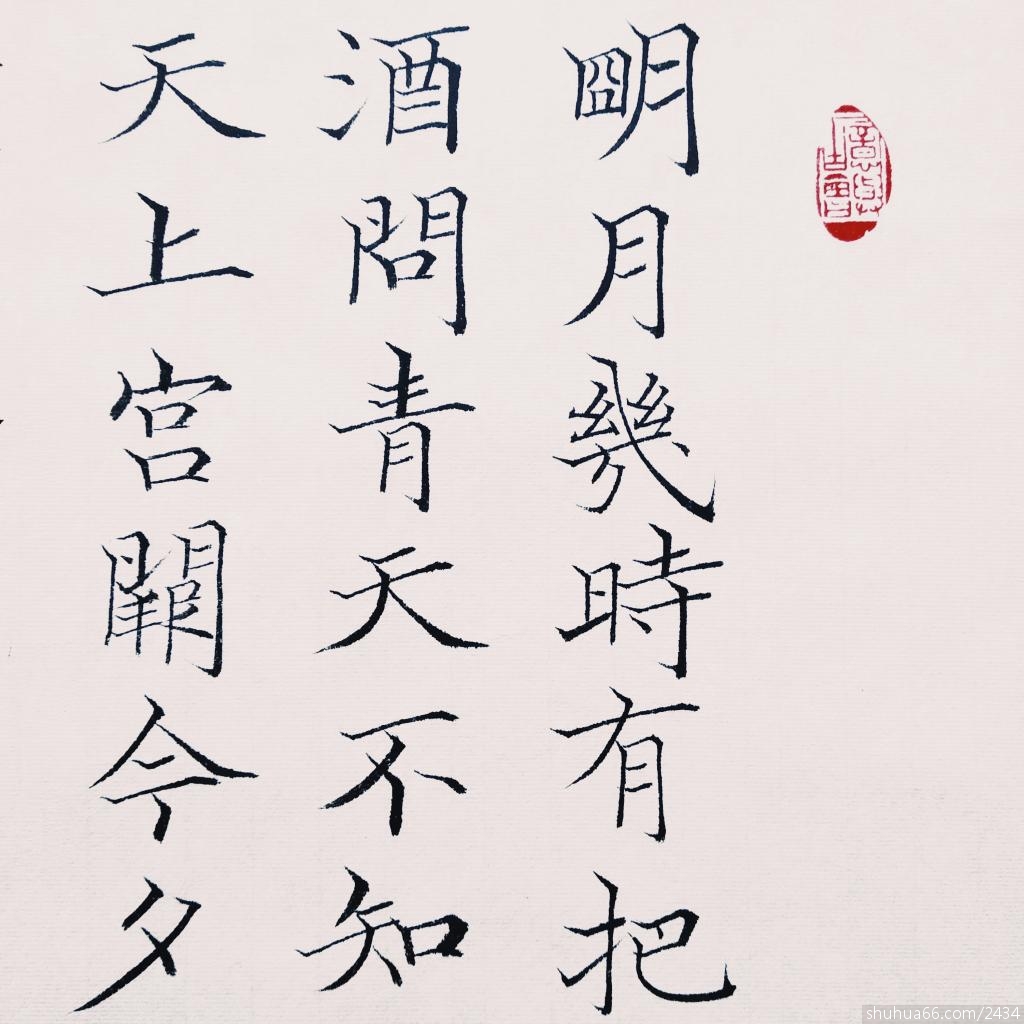 意與古會
朙月幾時有把
酒問青天不知
天上宫闕今夕
shuhua66.com/2434